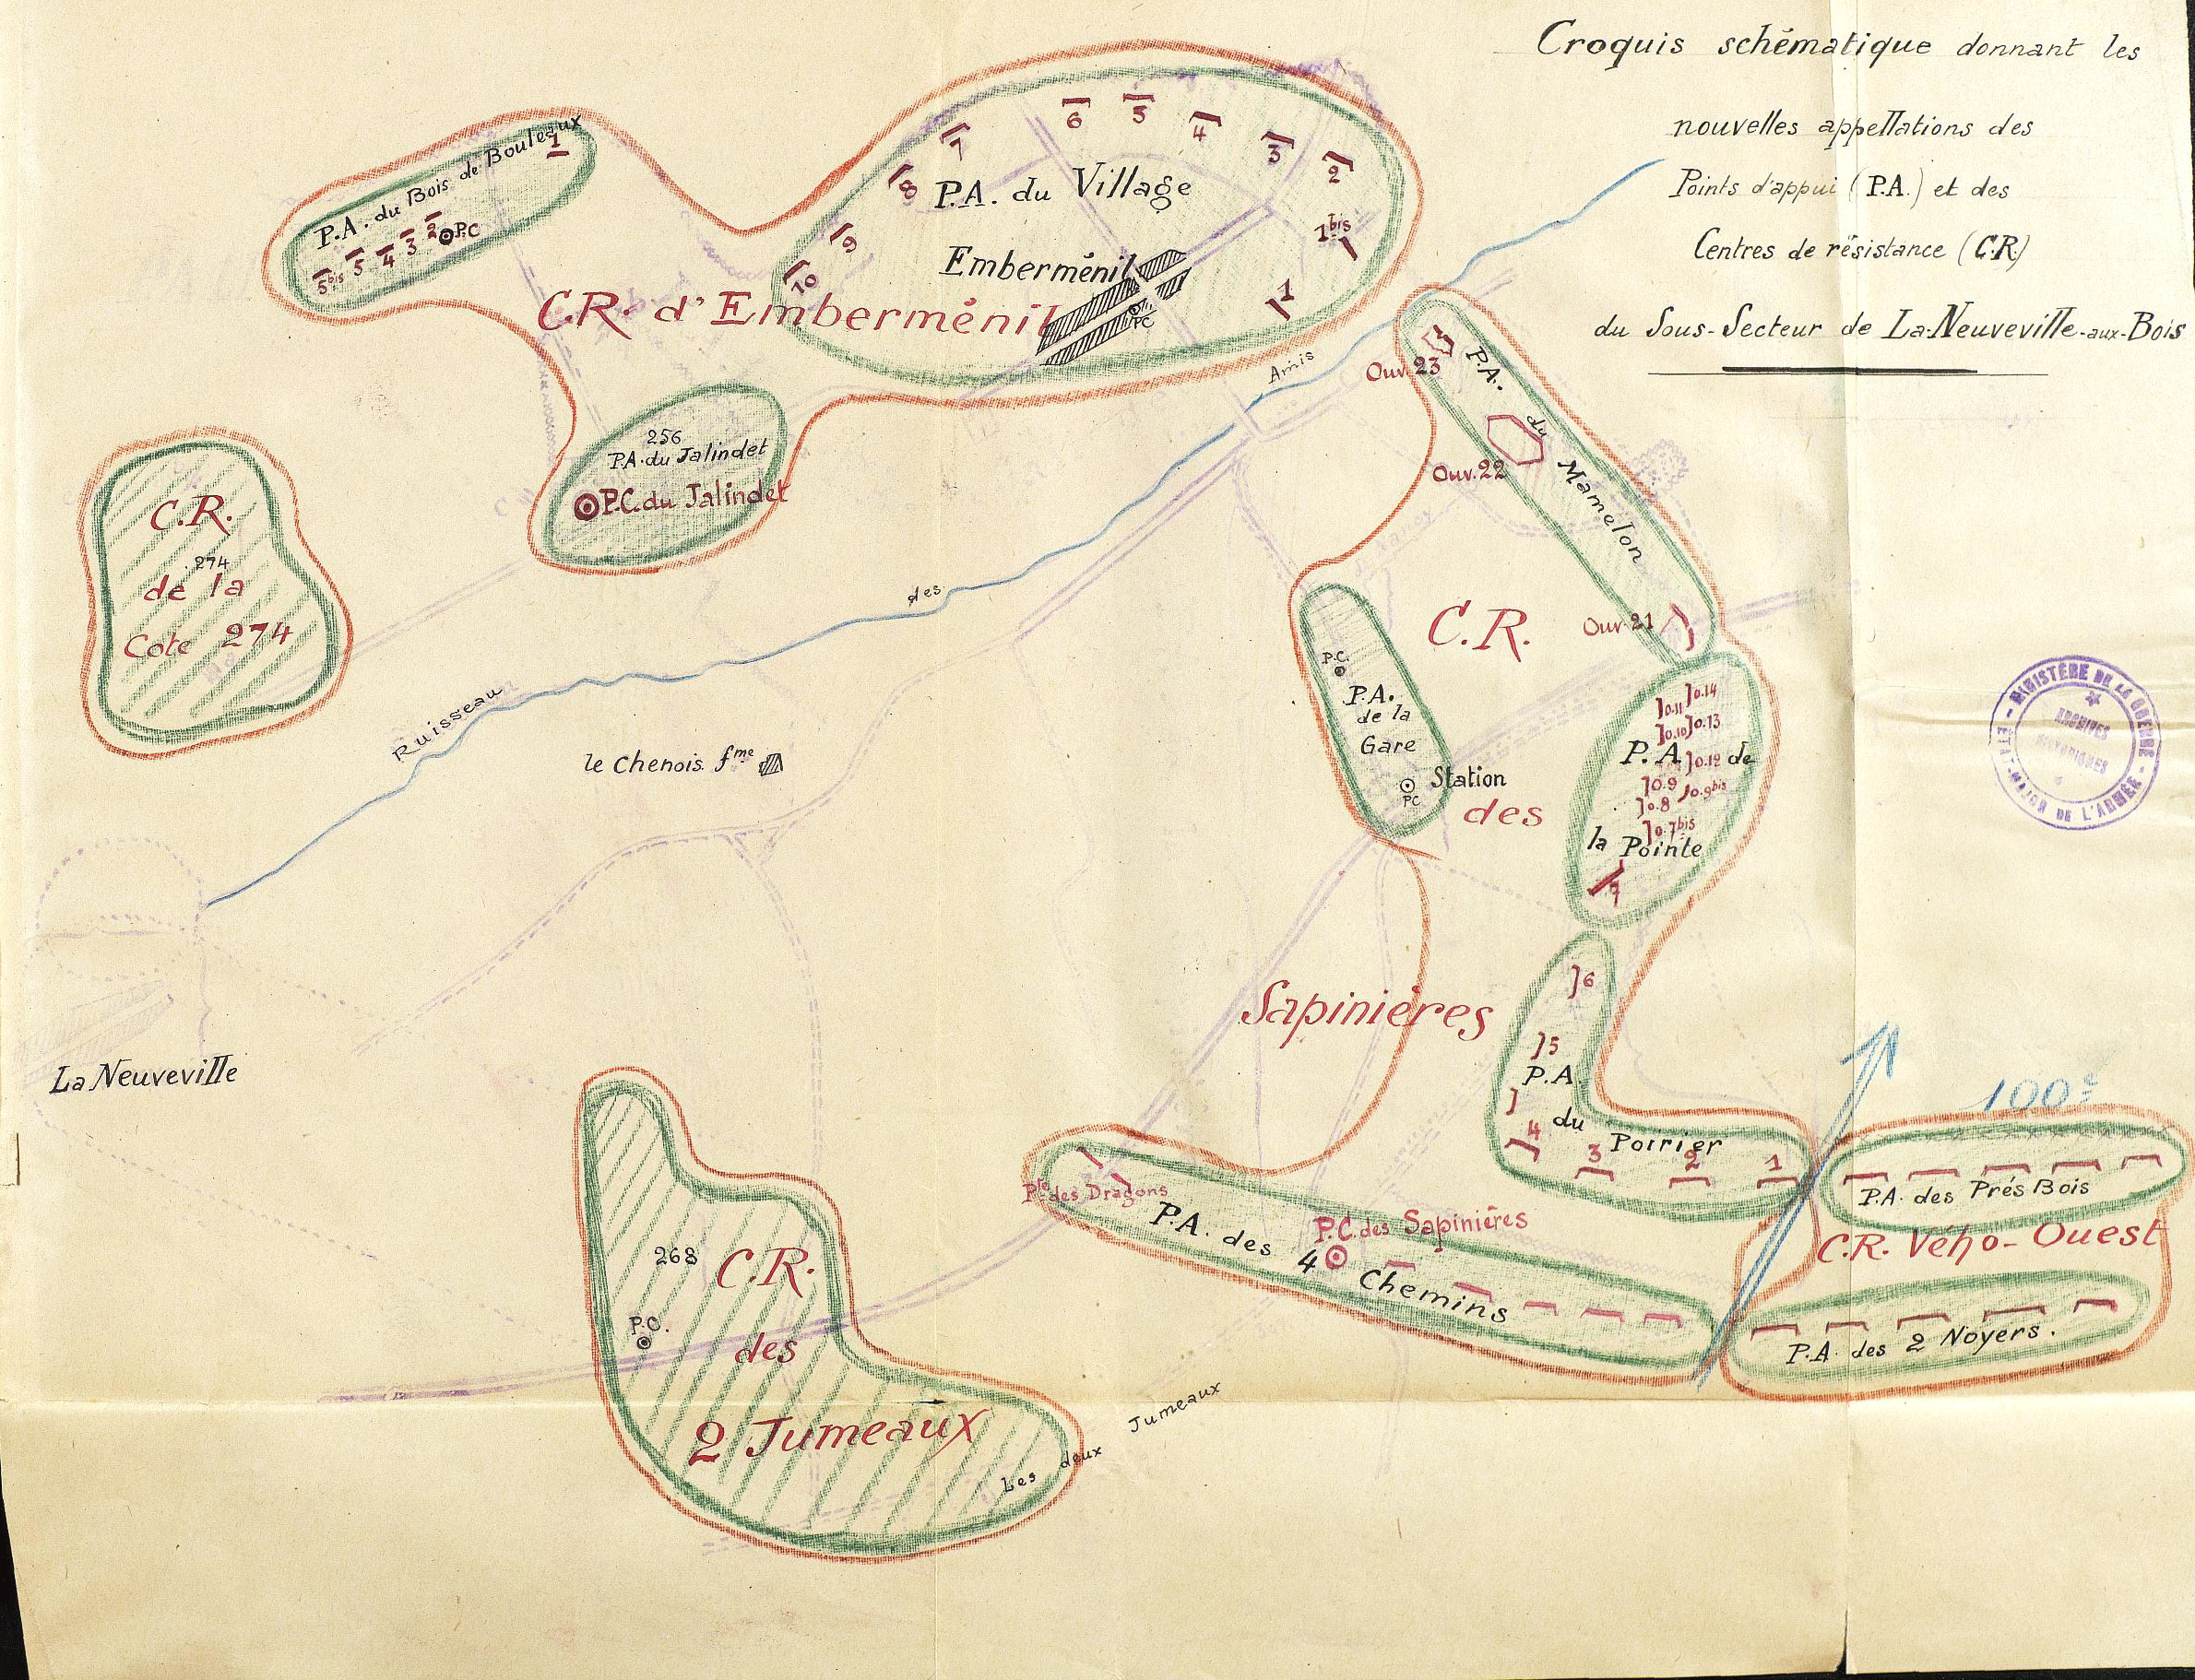 Croquis schématique donnant les
nouvelles appellations des
Points d'appui (P.A.) et des
Centres de résistance (C.R)
du Sous-Secteur de La-Neuveville-aux-Bois
P.A. du Bois de Bouleaux
1
5bis 5 4 3 2 P.C
P.A. du Village
Emberménil
PC
10 9 8 7 6 5 4 3 2 1bis 1
C.R. d'Emberménil
256
P.A. du Jalindet
P.C. du Jalindet
C.R.
.274
de la
Cote 274
Ruisseau des Amis
le Chenois fme
La Neuveville
Ouv. 23
P.A. du Mamelon
Ouv. 22
Ouv. 21
C.R.
des
Sapinières
P.C.
P.A.
de la
Gare
PC
Station
]0.14
]0.11
]0.13
]0.10
P.A. de
]0.12
]0.9
]0.9bis
]0.8
]0.7bis
la Pointe
7
6
5
P.A.
du
Poirier
4
3 2 1
Pte des Dragons
P.A. des 4 Chemins
P.C. des Sapinières
100e
P.A. des Prés Bois
C.R. Vého-Ouest
P.A. des 2 Noyers.
268
C.R.
P.C.
des
2 Jumeaux
Les deux Jumeaux
MINISTÈRE DE LA GUERRE
ARCHIVES
HISTORIQUES
ÉTAT-MAJOR DE L'ARMÉE